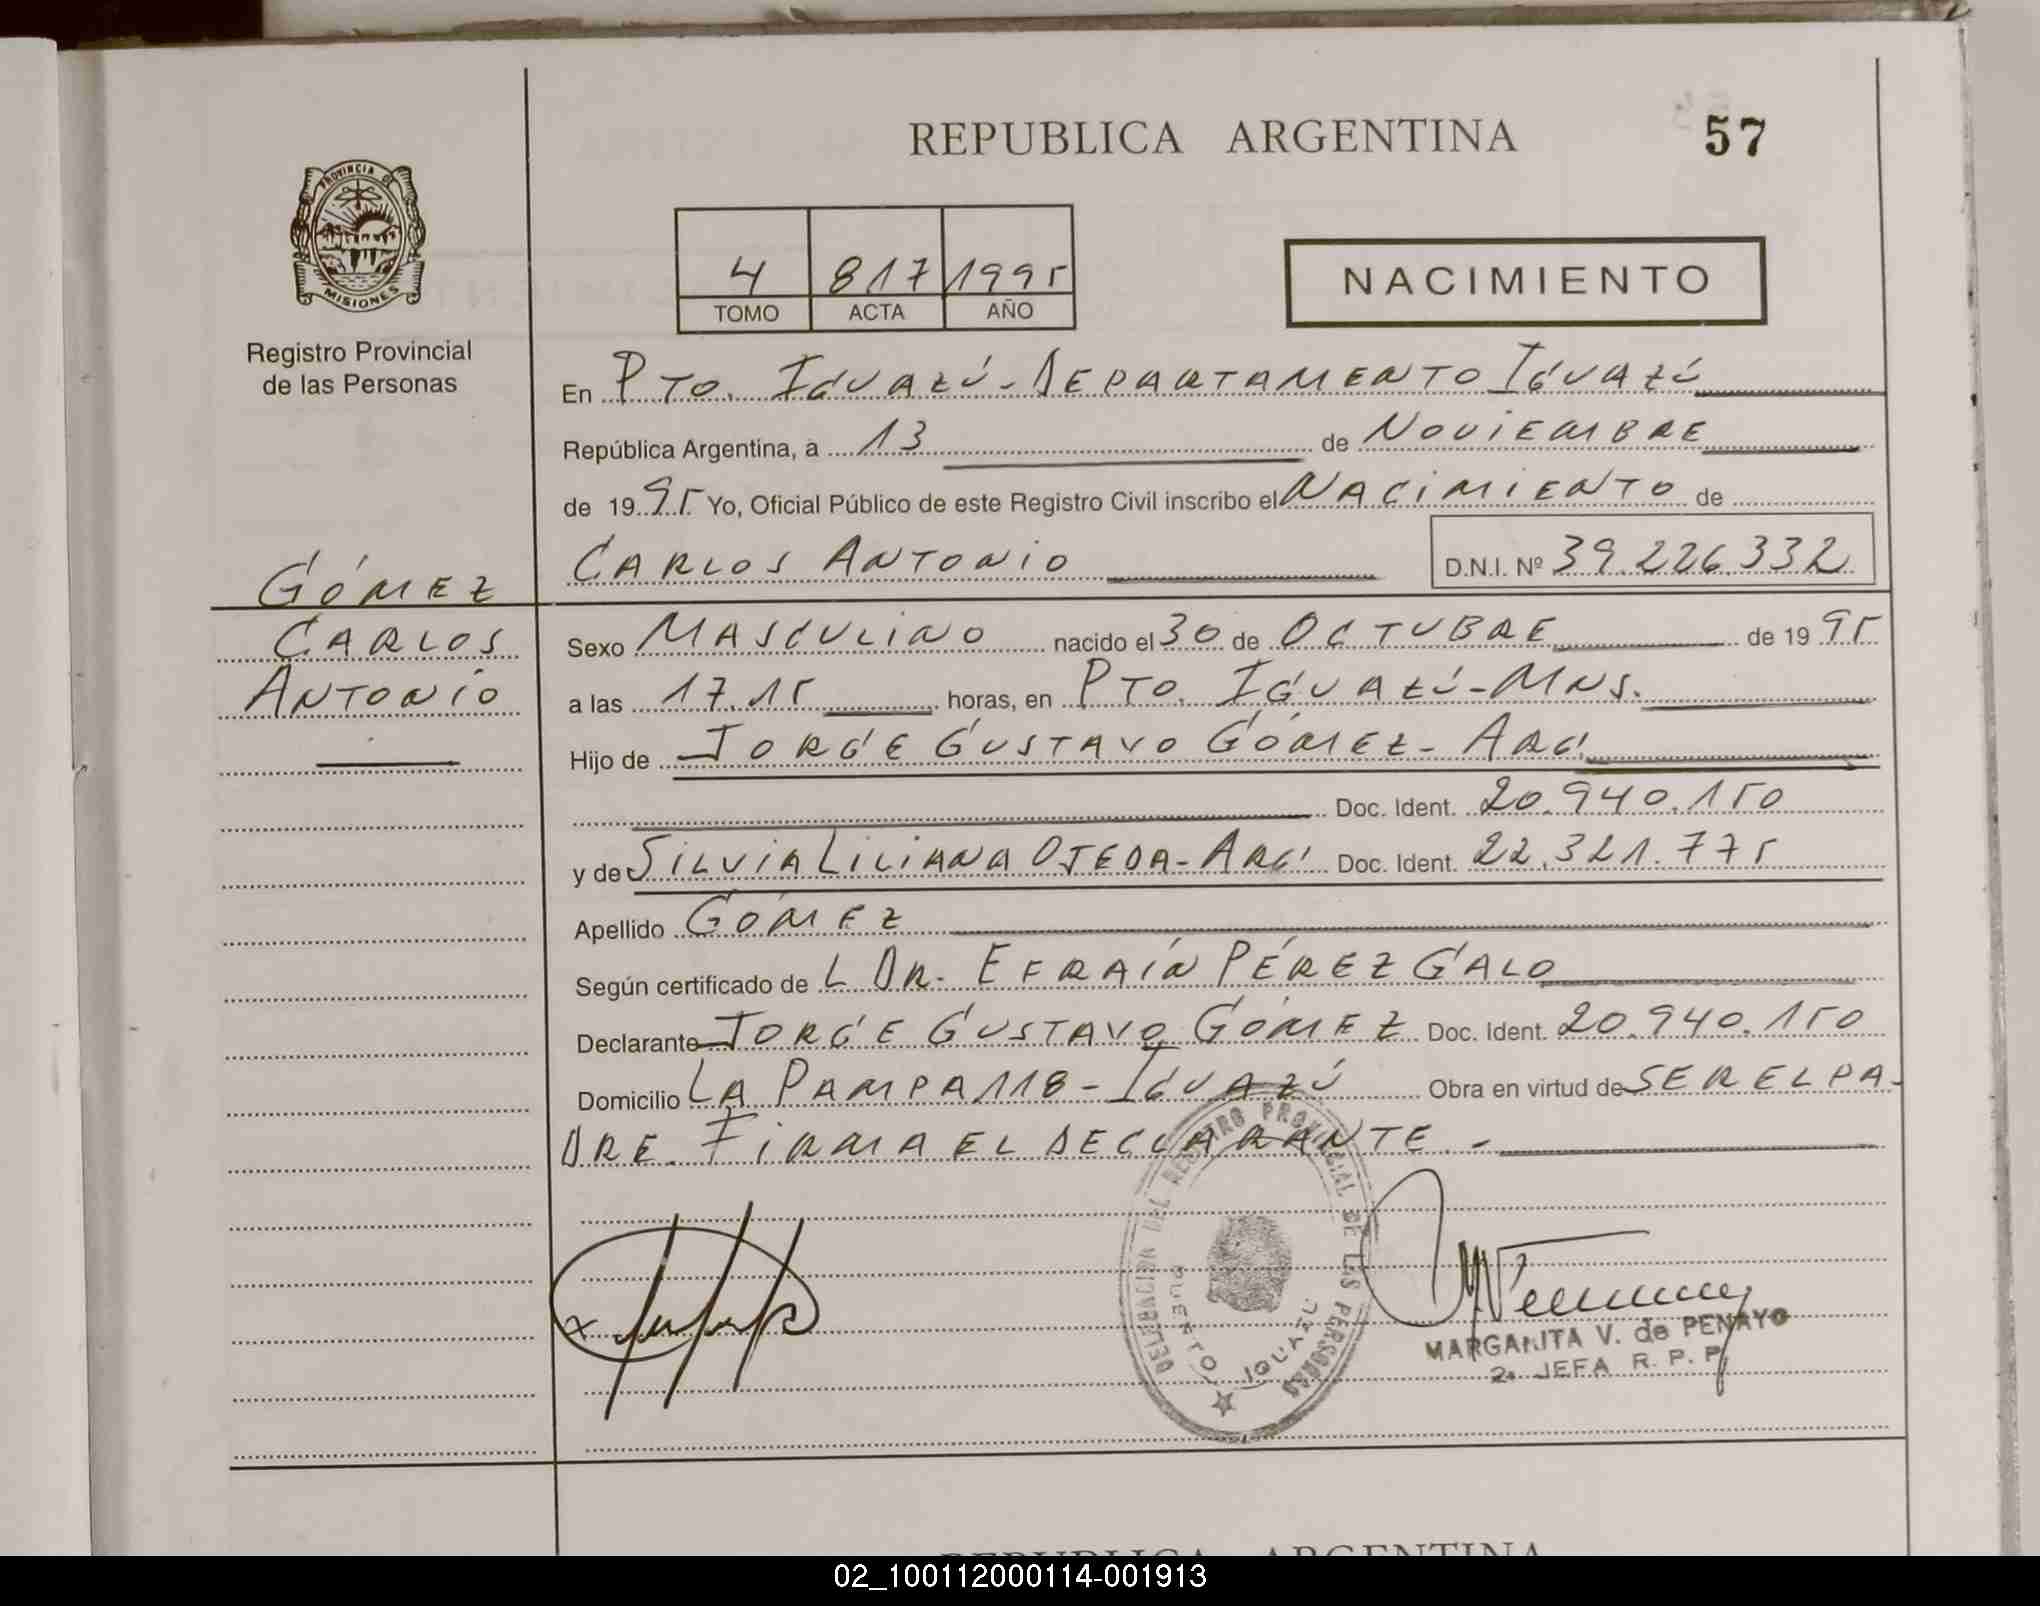 REPUBLICA ARGENTINA
57
PROVINCIA DE
MISIONES
Registro Provincial
de las Personas
4 817 1995
TOMO ACTA AÑO
NACIMIENTO
En PTO. IGUAZÚ - DEPARTAMENTO IGUAZÚ
República Argentina, a 13 de NOVIEMBRE
de 1995 Yo, Oficial Público de este Registro Civil inscribo el NACIMIENTO de
CARLOS ANTONIO D.N.I. Nº 39.226.332
GÓMEZ
CARLOS
ANTONIO
Sexo MASCULINO nacido el 30 de OCTUBRE de 1995
a las 17.15 horas, en PTO. IGUAZÚ - MNS.
Hijo de JORGE GUSTAVO GÓMEZ - ARG.
Doc. Ident. 20.940.150
y de SILVIA LILIANA OJEDA - ARG. Doc. Ident. 22.321.775
Apellido GÓMEZ
Según certificado de L DR. EFRAÍN PÉREZ GALO
Declarante JORGE GUSTAVO GÓMEZ Doc. Ident. 20.940.150
Domicilio LA PAMPA 118 - IGUAZÚ Obra en virtud de SER EL PA-
DRE. FIRMA EL DECLARANTE. -
DELEGACION DEL REGISTRO PROVINCIAL DE LAS PERSONAS
PUERTO IGUAZU
MARGARITA V. de PENAYO
2. JEFA R. P. P.
REPUBLICA ARGENTINA
02_100112000114-001913